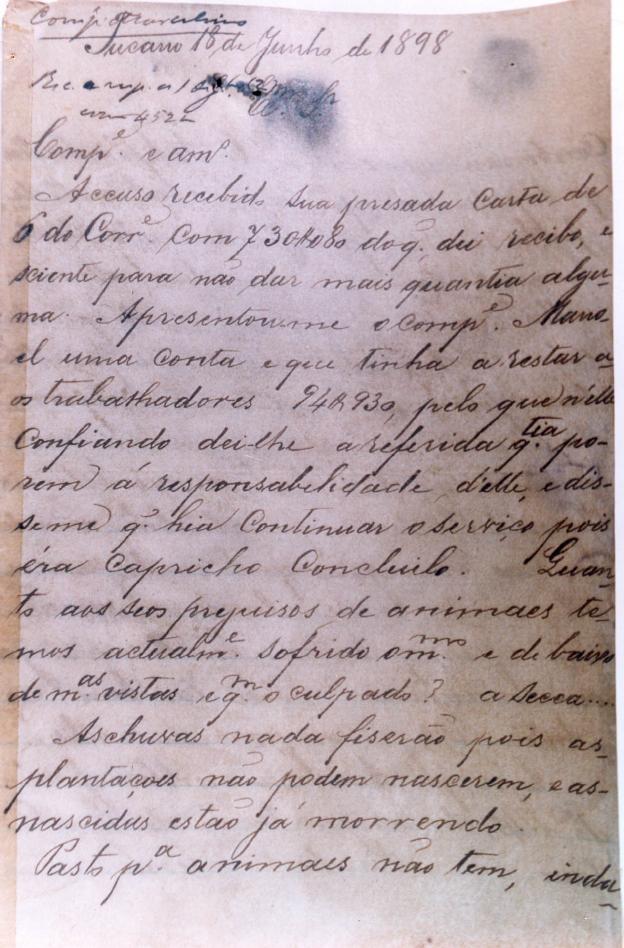 Tucano 18 de Junho de 1898
Comp.e e am.o
Accuso recebido sua presada Carta de
6 do Corr.e com 730$080 do q. dei recibo, e
sciente para não dar mais quantia algu-
ma. Apresentou-me o comp.e Mano-
el uma conta e que tinha a restar a-
os trabalhadores 94$930, pelo que n'elle
Confiando dei-lhe a referida q.tia po-
rem á responsabelidade d'elle, e dis-
se me q. hia Continuar o serviço, pois
éra Capricho Concluilo. Quan-
to aos seos prejuisos de animaes te-
mos actualm.e sofrido o m.mo e debaixo
de m.as vistas e q.m o culpado? a Secca....
As chuvas nada fiserão pois as-
plantaçoes não podem nascerem, e as-
nascidas estão já morrendo.
Pasto p.a animaes não tem, inda-